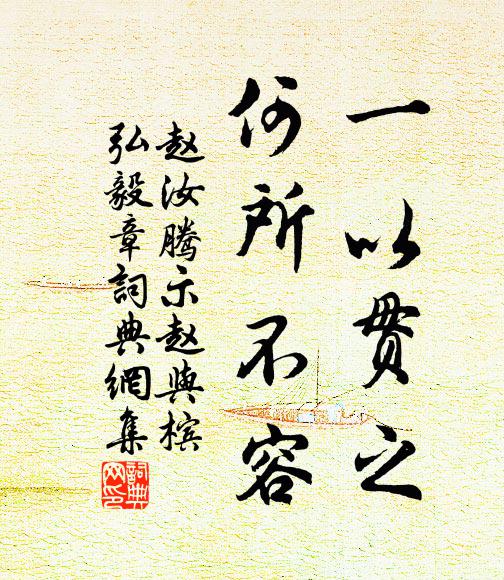 一以贯之
何所不容
赵汝腾示赵与槟
弘毅章詞典網集
詞典网印